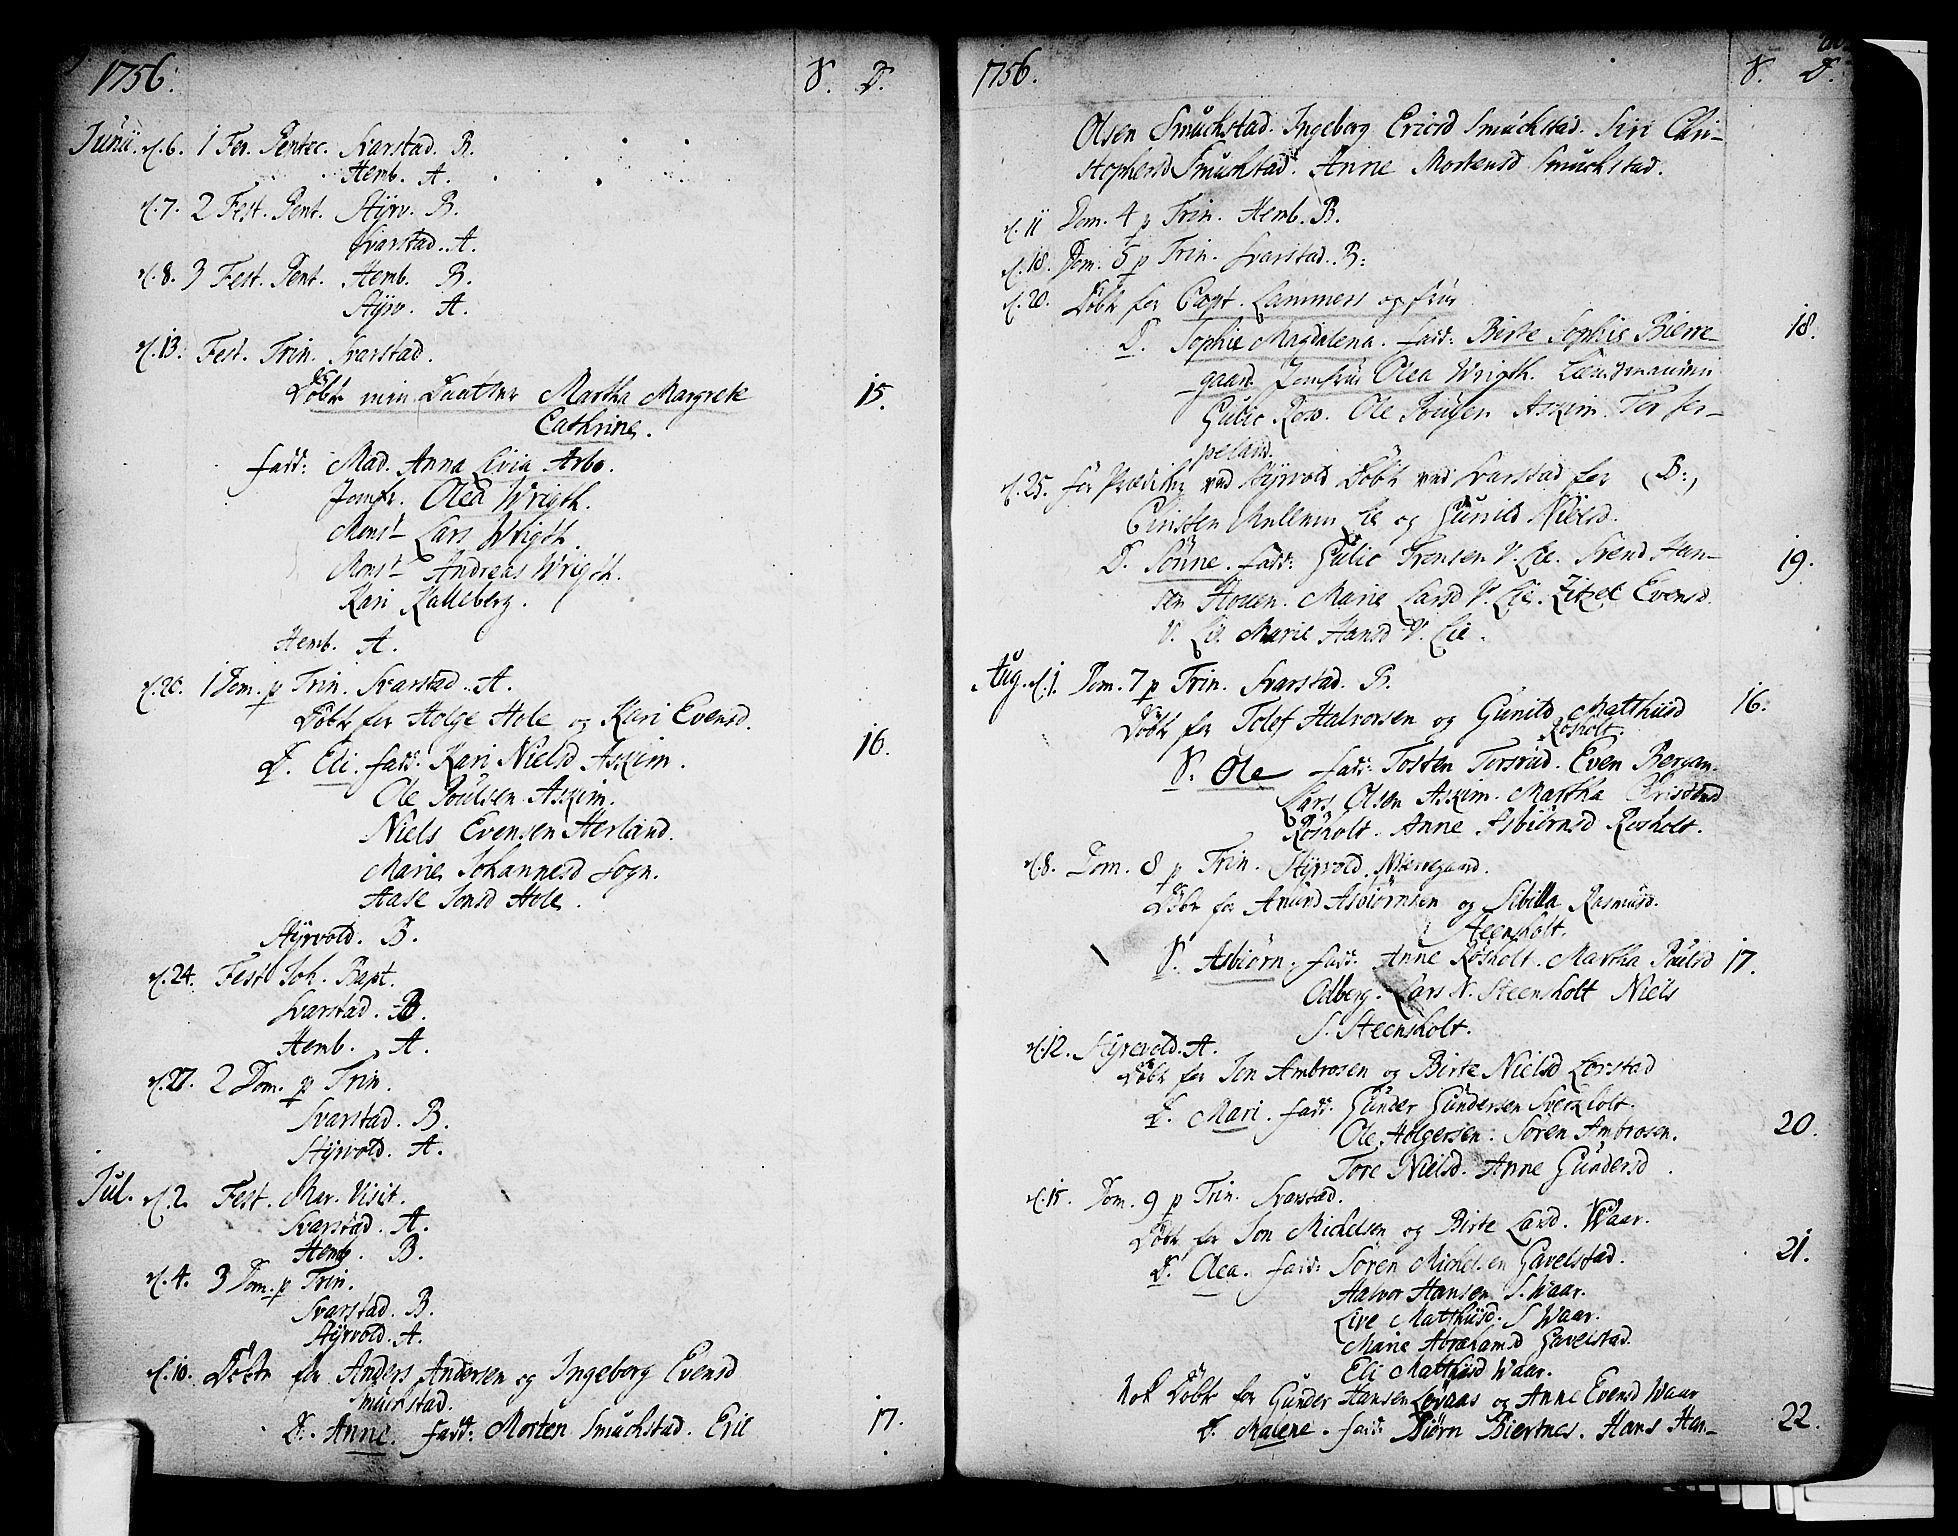 1756. S. D.
Junii. d. 6. 1 Fer. Pentec. Svarstad. B.
Hemb. A.
d. 7. 2 Fest. Pent. Styrv. B.
Svarstad. A.
d. 8. 3 Fest. Pent. Hemb. B.
Styrv. A.
d. 13. Fest. Trin. Svarstad.
Döbt min Daatter Martha Margrete 15.
Cathrine.
fadd: Mad. Anna Livia Arbo.
Jomfr. Olea Wrigth.
Monsr Lars Wrigth.
Monsr Andreas Wrigth.
Kari Kalleberg.
Hemb. A.
d. 20. 1 Dom. p Trin. Svarstad. A.
Döbt for Holge Hole og Kari Evensd.
D. Eli. fadd: Kari Nielsd Askim. 16.
Ole Poulsen Askim.
Niels Evensen Herland.
Marie Johannesd Sogn.
Aase Jonsd Hole.
Styrvold. B.
d. 24. Fest Joh. Bapt.
Svarstad. B.
Hemb. A.
d. 27. 2 Dom. p Trin.
Svarstad. B.
Styrvold. A.
Jul. d. 2 Fest. Mar. Visit.
Svarstad. A.
Hemb. B.
d. 4. 3 Dom. p Trin.
Svarstad. B.
Styrvold. A.
d. 10. Döbt for Anders Andersen og Ingeborg Evensd
Smuchstad.
D. Anne. fadd: Morten Smuchstad. Eric 17.
1756. S. D.
Olsen Smuchstad. Ingeborg Ericsd Smuchstad. Siri Chri-
stophersd Smuchstad. Anne Mortensd Smuchstad.
d. 11 Dom. 4 p Trin. Hemb. B.
d. 18. Dom. 5 p Trin. Svarstad. B:
d. 20. Döbt for Capt. Lammers og frue
D. Sophie Magdalena. fadd: Birte Sophie Bierre- 18.
gaard. Jomfru Olea Wrigth.
Gulic Ole Poulsen Askim. Tor
peland.
d. 25. for Prædiken ved Styrvold Döbt ved Svarstad for (B:)
Christen Lie og Gunild Nielsd.
D. Sönne. fadd: Gulic Tronsen V. Lie. Svend Han- 19.
sen Hoven. Marie Larsd V. Lie. Zitzel Evensd.
V. Lie. Marie Hansd V. Lie.
Aug. d. 1. Dom. 7 p Trin. Svarstad. B.
Döbt for Tolef Halvorsen og Gunild Matthiisd 16.
Rosholt.
S. Ole fadd: Tosten Torsrud. Even Bergan.
Lars Olsen Askim. Martha
Rosholt. Anne Asbiörnsd Rosholt.
d. 8. Dom. 8 p Trin. Styrvold. Nierregaard.
Döbt for Amund Asbiörnsen og Sibilla Rasmusd.
Steensholt.
S. Asbiörn. fadd: Anne Rosholt. Martha Poulsd 17.
Odberg. Lars N. Steensholt Niels
S. Steensholt.
d. 12. Styrevold. A.
Döbt for Jon Ambrosen og Birte Nielsd Lorstad
D. Mari. fadd: Gunder Gundersen
Ole Holgersen. Sören Ambrosen. 20.
Tore Nielsd. Anne Gundersd.
d. 15 Dom. 9 p Trin. Svarstad.
Döbt for Jon Michelsen og Birte Larsd. Waar.
D. Olea. fadd: Sören Michelsen Gavelstad. 21.
Halvor Hansen S. Waar.
Live Matthiisd. S Waar.
Marie Abrahamsd Gavelstad.
Eli Matthiisd Waar.
Nok Döbt for Gunder Hansen Lövaas og Anne Evensd Waar
D. Malene. fadd: Biörn Biertnes. Hans Han- 22.